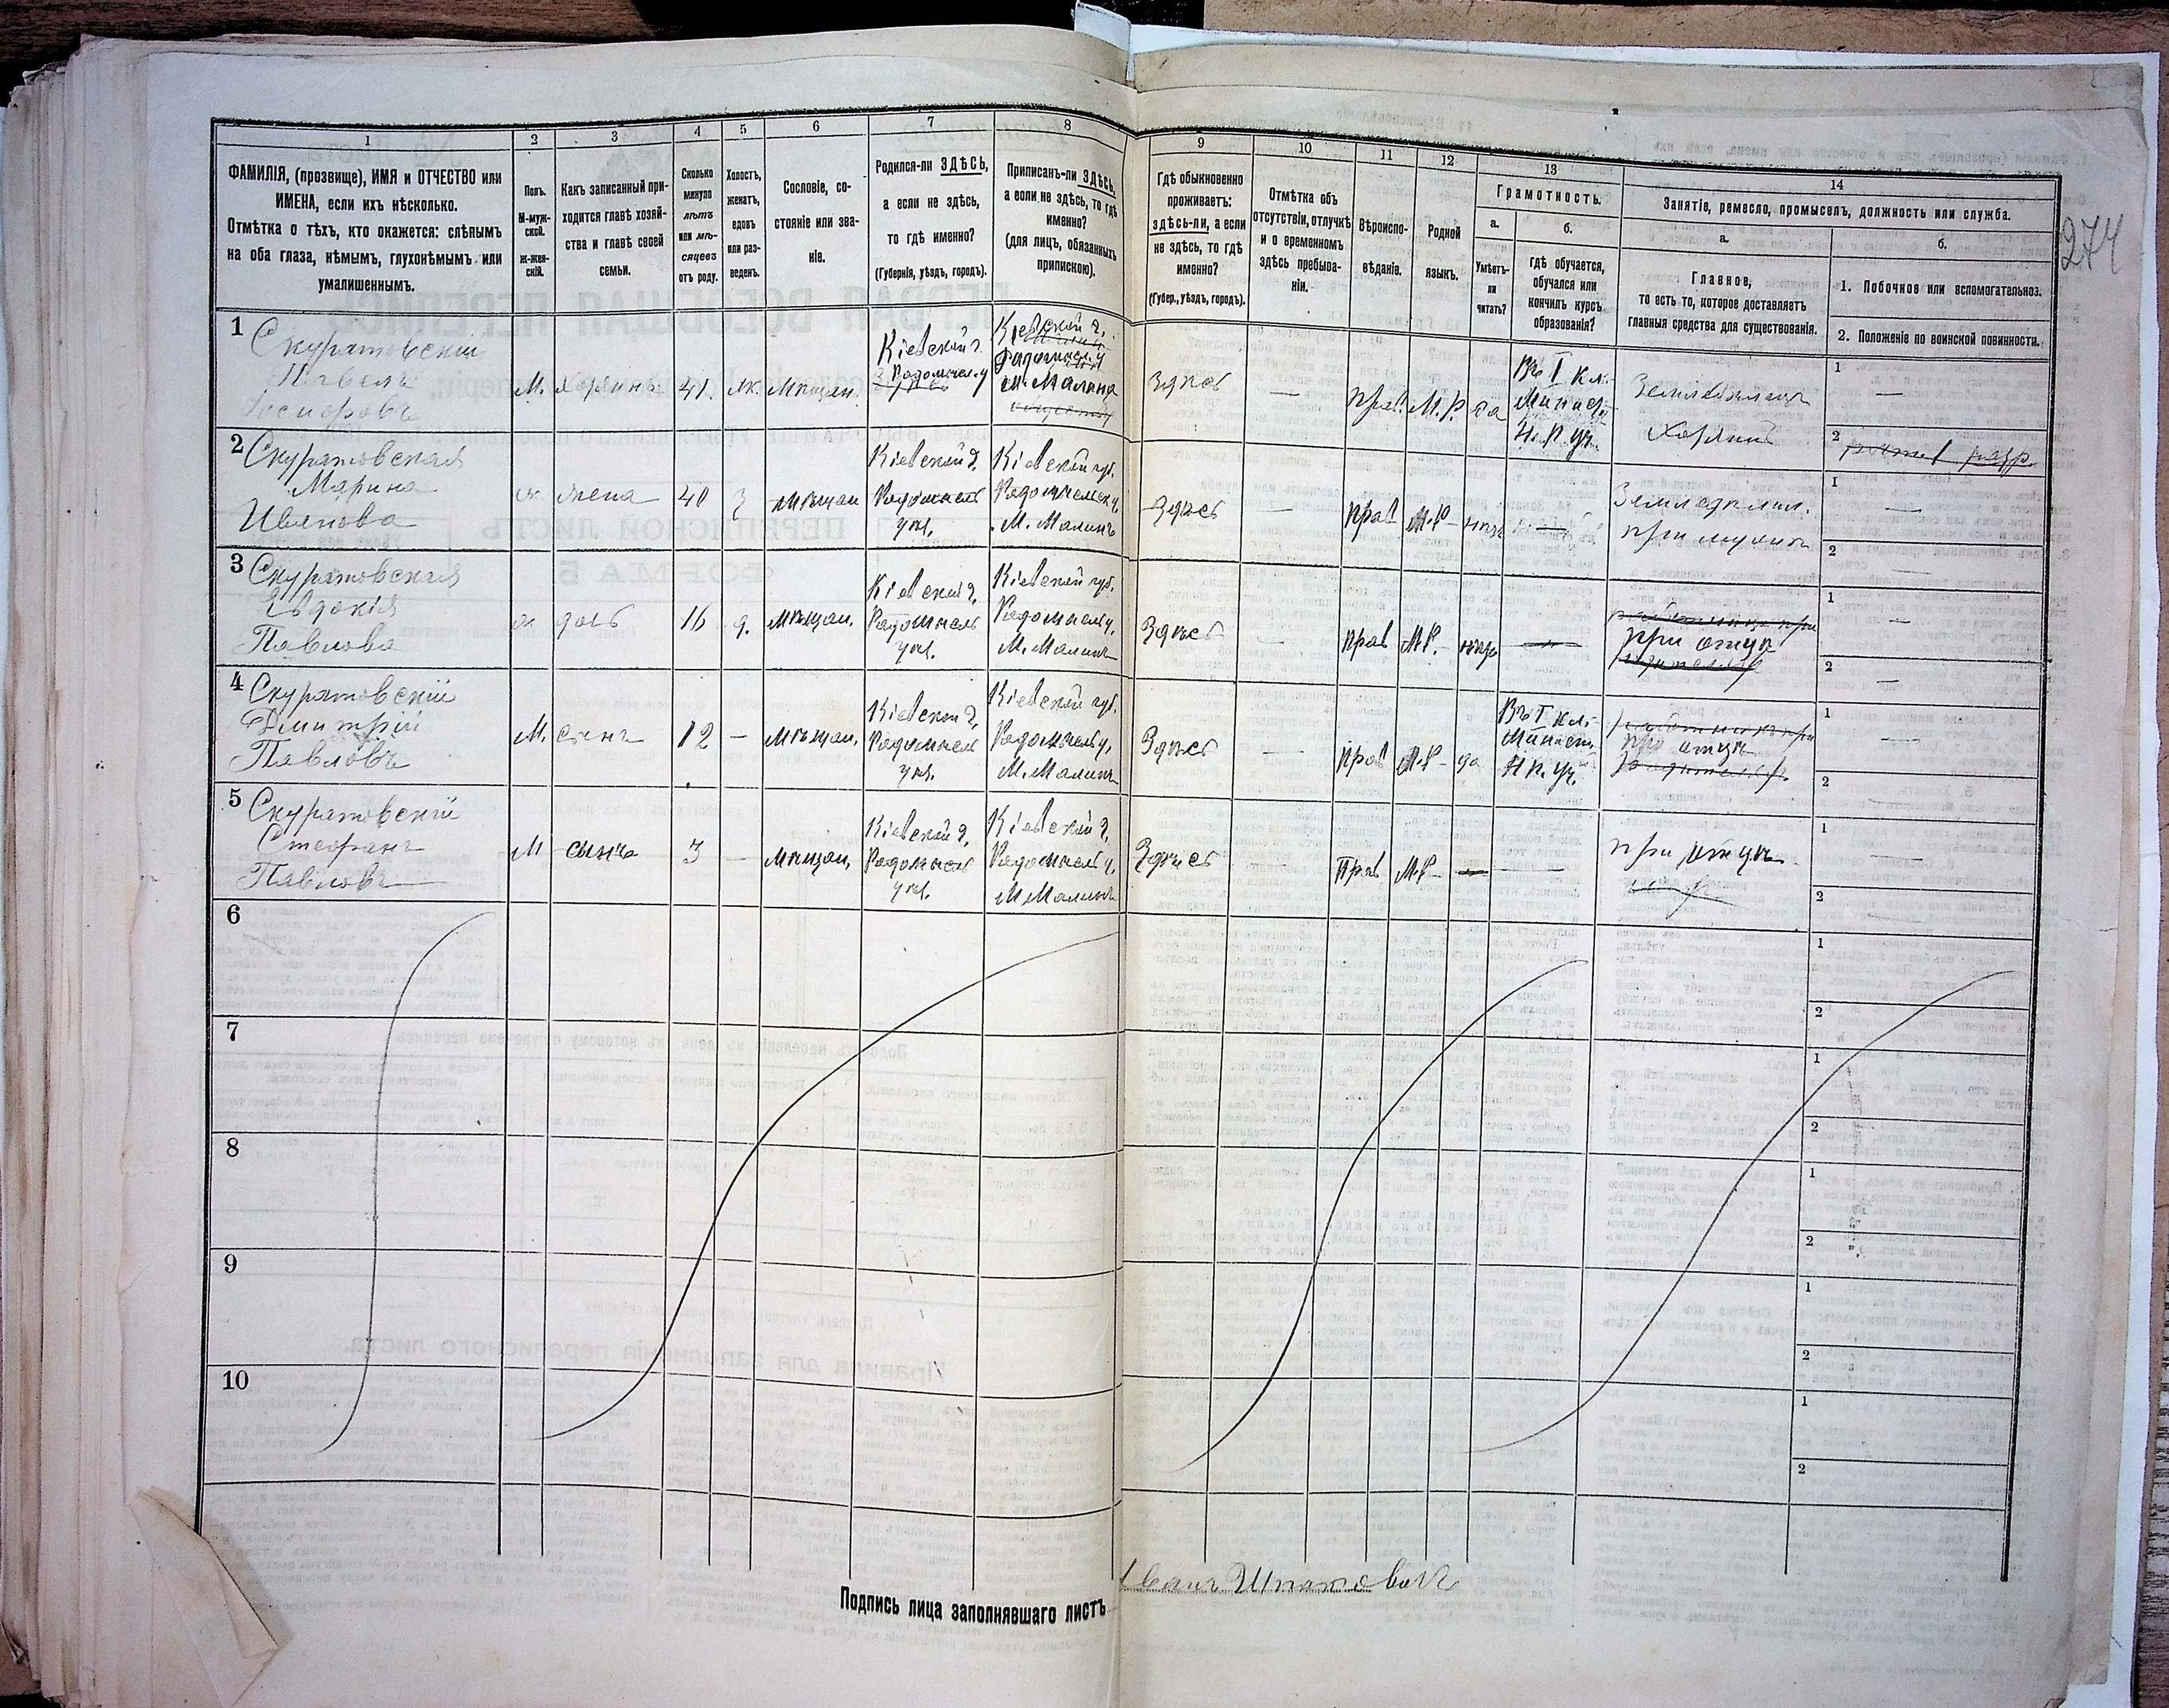 274
1
2
3
4
5
6
7
8
9
10
11
12
13
14
ФАМИЛІЯ, (прозвище), ИМЯ и ОТЧЕСТВО или
ИМЕНА, если ихъ нѣсколько.
Отмѣтка о тѣхъ, кто окажется: слѣпымъ
на оба глаза, нѣмымъ, глухонѣмымъ или
умалишеннымъ.
Полъ.
М-муж-
ской.
ж-жен-
скій.
Какъ записанный при-
ходится главѣ хозяй-
ства и главѣ своей
семьи.
Сколько
минуло
лѣтъ
или мѣ-
сяцевъ
отъ роду.
Холостъ,
женатъ,
вдовъ
или раз-
веденъ.
Сословіе, со-
стояніе или зва-
ніе.
Родился-ли ЗДѢСЬ,
а если не здѣсь,
то гдѣ именно?
(Губернія, уѣздъ, городъ).
Приписанъ-ли ЗДѢСЬ,
а если не здѣсь, то гдѣ
именно?
(для лицъ, обязанныхъ
припискою).
Гдѣ обыкновенно
проживаетъ:
здѣсь-ли, а если
не здѣсь, то гдѣ
именно?
(Губер., уѣздъ, городъ).
Отмѣтка объ
отсутствіи, отлучкѣ
и о временномъ
здѣсь пребыва-
ніи.
Вѣроиспо-
вѣданіе.
Родной
языкъ.
Грамотность.
а.
Умѣетъ-
ли
читать?
б.
гдѣ обучается,
обучался или
кончилъ курсъ
образованія?
Занятіе, ремесло, промыселъ, должность или служба.
а.
Главное,
то есть то, которое доставляетъ
главныя средства для существованія.
б.
1. Побочное или вспомогательное.
2. Положеніе по воинской повинности.
1
Скуратовскій
Павелъ
М.
хозяинъ
41.
ж.
Мѣщан.
Кіевской г.
Радомысл. у
Кіевской г.
Радомысл. у
м. Малина
Здѣсь
—
прав.
М.Р.
да
Въ I кл.
Минист.
Н.п. уч.
Хозяинъ
1
—
2
2
Скуратовская
Марина
Иванова
ж.
жена
40
з
мѣщан
Кіевской г.
Радомысл
уѣз.
Кіевской губ.
Радомысльск у.
М. Малинъ
Здѣсь
—
прав
М.Р-
Земледѣл.
при мужѣ
1
—
2
—
3
Скуратовская
Евдокія
Павлова
ж
дочь
16
д.
мѣщан.
Кіевской г.
Радомысль
уѣз.
Кіевской губ.
Радомысль у.
М. Малинъ
Здѣсь
—
прав
М.Р.-
—
при отцѣ
1
—
2
—
4
Скуратовскій
Дмитрій
Павловъ
М.
сынъ
12
—
Мѣщан.
Кіевской г.
Радомысль
уѣз.
Кіевской губ.
Радомысль у.
М. Малинъ
Здѣсь
—
прав
М.Р-
да
Въ I кл.
Минист.
Н п. уч.
при отцѣ
1
—
2
5
Скуратовскій
Стефанъ
Павловъ
М
сынъ
3
—
Мѣщан.
Кіевской г.
Радомысль
уѣз.
Кіевской г.
Радомысль у.
М Малинъ
Здѣсь
—
Прав
М.Р-
—
—
при отцѣ
1
—
2
6
1
2
7
1
2
8
1
2
9
1
2
10
1
2
Подпись лица заполнявшаго листъ